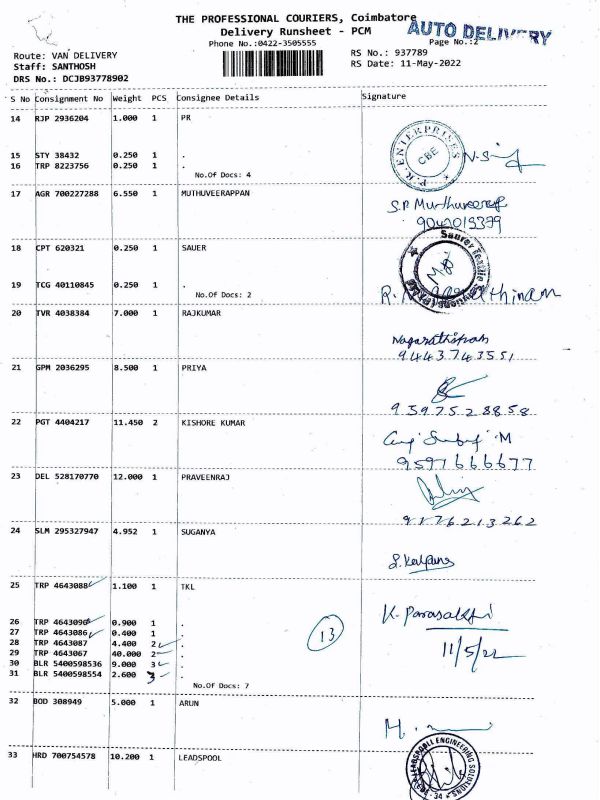 THE PROFESSIONAL COURIERS, Coimbatore
AUTO DELIVERY
Delivery Runsheet - PCM
Phone No.:0422-3505555
Page No.:2
Route: VAN DELIVERY
RS No.: 937789
Staff: SANTHOSH
RS Date: 11-May-2022
DRS No.: DCJB93778902
S No Consignment No Weight PCS Consignee Details Signature
14 RJP 2936204 1.000 1 PR
P.R. ENTERPRISES CBE
15 STY 38432 0.250 1 .
16 TRP 8223756 0.250 1 .
No.Of Docs: 4
17 AGR 700227288 6.550 1 MUTHUVEERAPPAN
S.P. Muthuveerap
9042013379
18 CPT 620321 0.250 1 SAUER
Saurer Textile
19 TCG 40110845 0.250 1 .
No.Of Docs: 2
20 TVR 4038384 7.000 1 RAJKUMAR
9443743551
21 GPM 2036295 8.500 1 PRIYA
9597528858
22 PGT 4404217 11.450 2 KISHORE KUMAR
9597666677
23 DEL 528170770 12.000 1 PRAVEENRAJ
9176213262
24 SLM 295327947 4.952 1 SUGANYA
S. Kalpana
25 TRP 4643088 1.100 1 TKL
K. Parasakthi
26 TRP 4643090 0.900 1 .
27 TRP 4643086 0.400 1 .
13
28 TRP 4643087 4.400 2 .
11/5/22
29 TRP 4643067 40.000 2 .
30 BLR 5400598536 9.000 3 .
31 BLR 5400598554 2.600 3 .
No.Of Docs: 7
32 BOD 308949 5.000 1 ARUN
33 HRD 700754578 10.200 1 LEADSPOOL
ENGINEERING SOLUTIONS